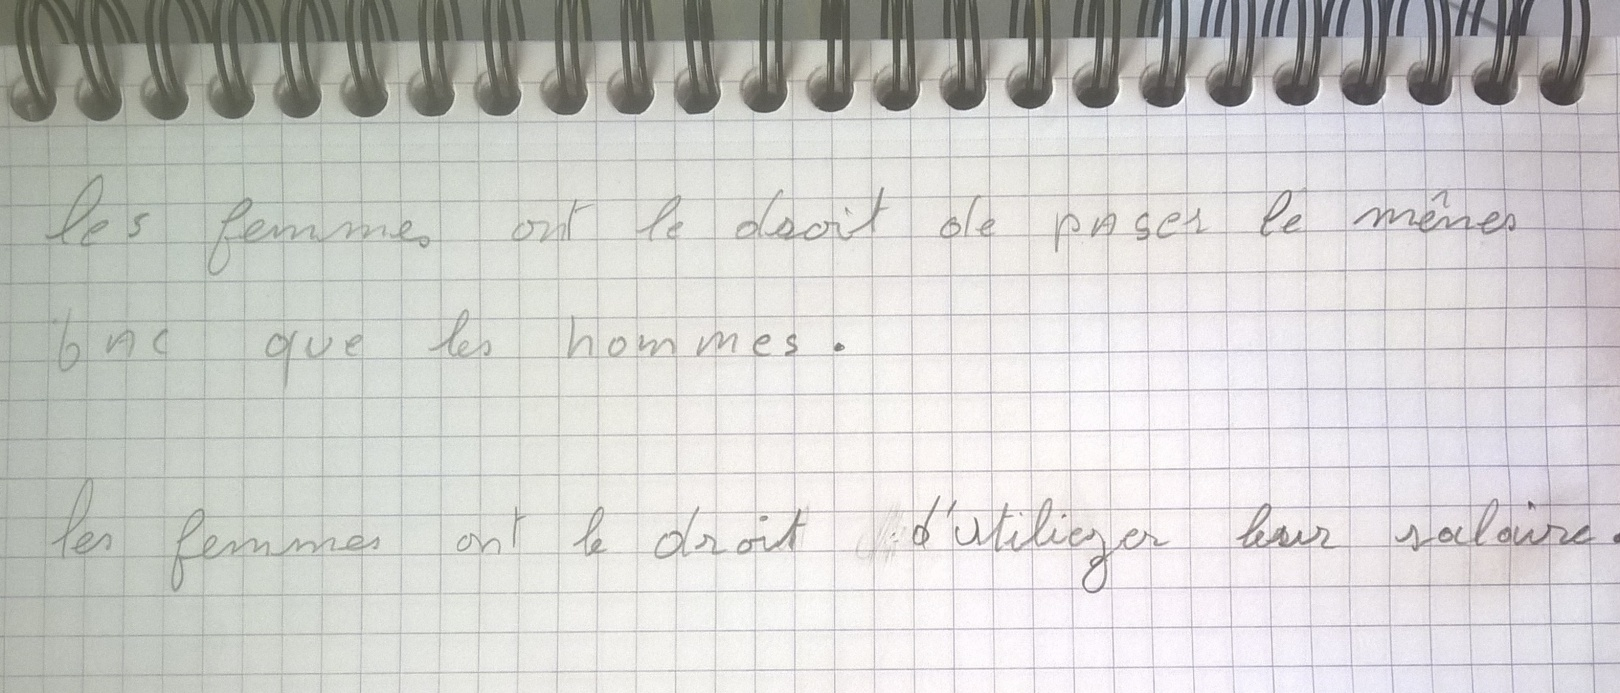 les femmes ont le droit de passer le mêmes
bac que les hommes.
les femmes ont le droit d'utiliezer leur salaire.